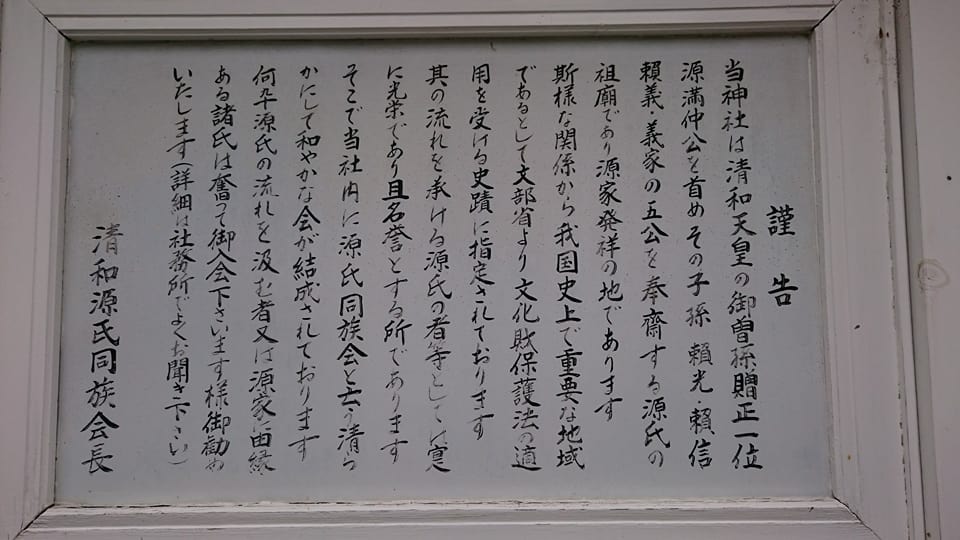 謹告
当神社は清和天皇の御曽孫贈正一位
源満仲公を首めその子孫頼光・頼信
頼義・義家の五公を奉齋する源氏の
祖廟であり源家発祥の地であります
斯様な関係から我国史上で重要な地域
であるとして文部省より文化財保護法の適
用を受ける史蹟に指定されております
其の流れを承ける源氏の者等としては寔
に光栄であり且名誉とする所であります
そこで当社内に源氏同族会と云う清ら
かにして和やかな会が結成されております
何卒源氏の流れを汲む者又は源家に由縁
ある諸氏は奮って御入会下さいます様御勧め
いたします(詳細は社務所でよくお聞き下さい)
清和源氏同族会長